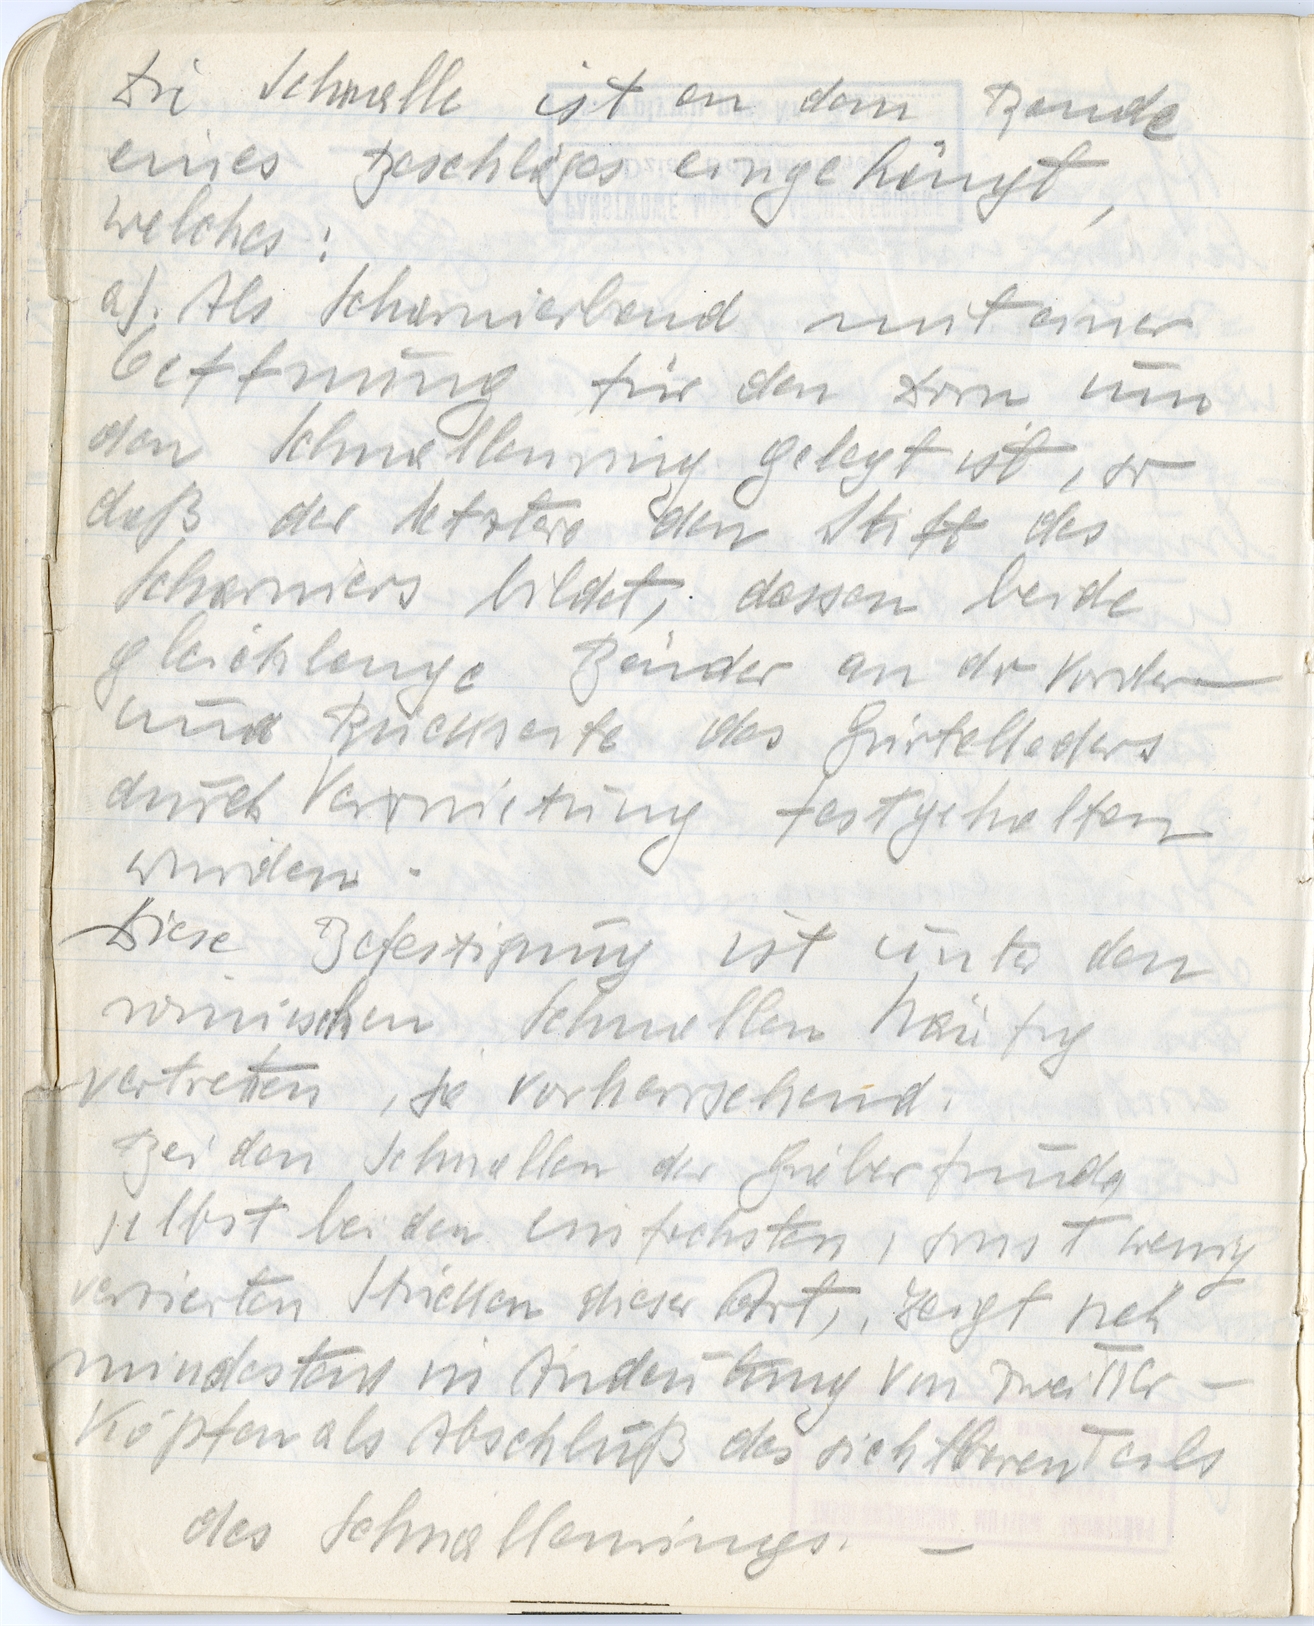 Die Schnalle ist an dem Bande
eines Beschläges eingehängt,
welches:
a). Als Scharnierband mit einer
Oeffnung für den Dorn um
den Schnallenring gelegt ist, so
daß der letztere den Stift des
Scharniers bildet, dessen beide
gleichlange Bänder an der Vorder-
und Rückseite des Gürtelleders
durch Vernietung festgehalten
wurden.
Diese Befestigung ist unter den
römischen Schnallen häufig
vertreten, ja vorherrschend.
Bei den Schnallen der Gräberfunde
selbst bei den einfachsten, sonst wenig
verzierten Stücken dieser Art, zeigt sich
mindestens in Andeutung von zwei Tier-
Köpfen als Abschluß des sichtbaren Teils
des Schnallenrings. —